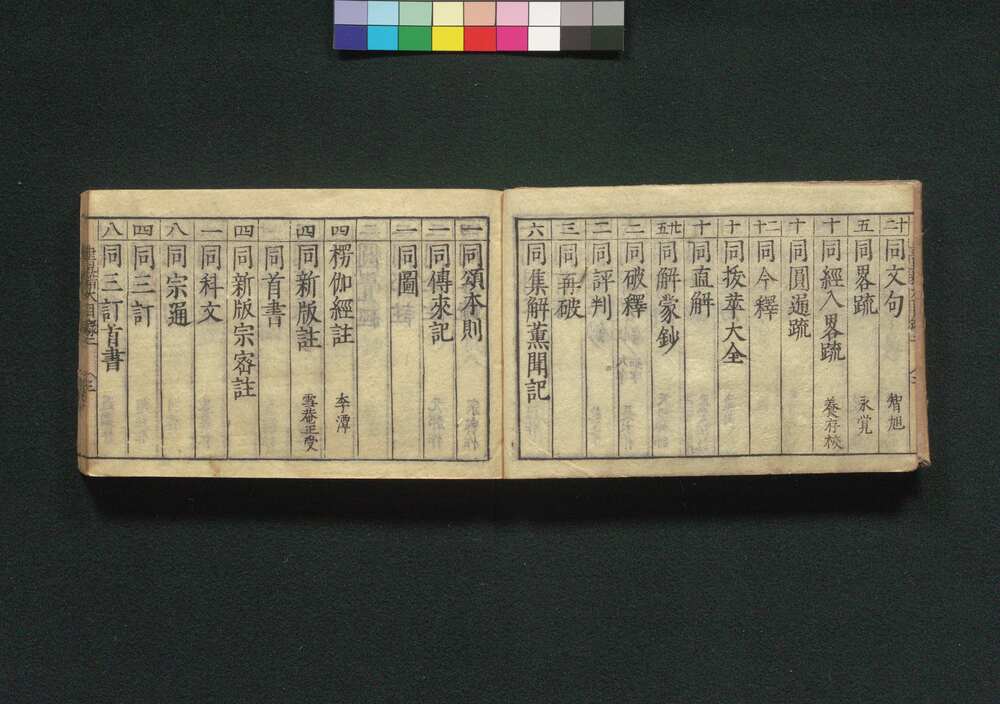 十二 同文句 智旭
五 同畧疏 永覚
十 同經入畧疏 養存校
十 同圓通疏
十二 同今釋
十 同抜萃大全
十 同直解
廿五 同解蒙鈔
二 同破釋
二 同評判
三 同再破
六 同集解薫聞記
一 同頌本則
一 同傳來記
一 同圖
四 楞伽經註 李潭
四 同新版註 雪菴正受
同首書
四 同新版宗宻註
一 同科文
八 同宗通
四 同三訂
八 同三訂首書